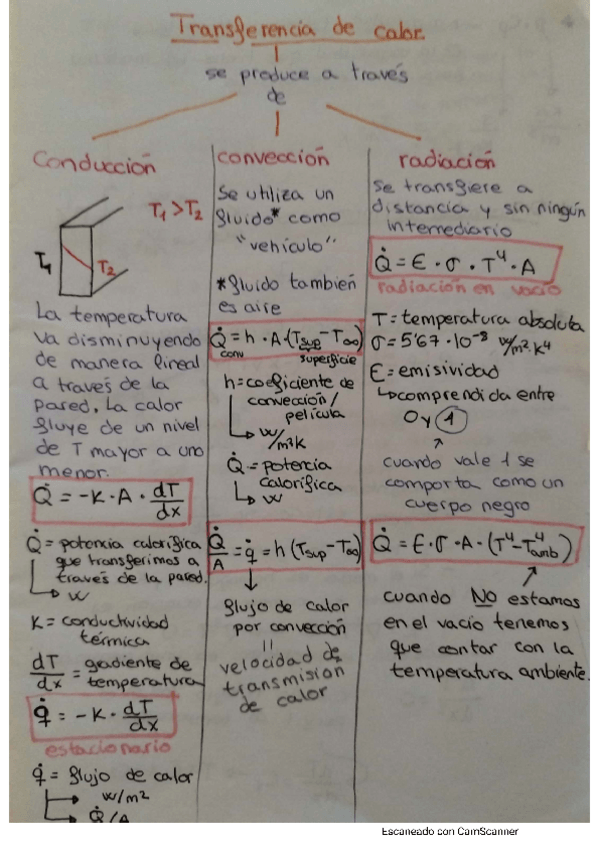 Transferencia de calor
se produce a través
de
Conducción
T₁ > T₂
T₁
T₂
La temperatura
va disminuyendo
de manera lineal
a través de la
pared. La calor
fluye de un nivel
de T mayor a uno
menor.
Q̇ = -K · A · dT/dx
Q̇ = potencia calorífica
que transferimos a
través de la pared.
↳ W
K = conductividad
térmica
dT/dx = gadiente de
temperatura
q̇ = -K · dT/dx
estacionario
q̇ = flujo de calor
→ W/m²
→ Q̇/A
convección
Se utiliza un
fluido* como
"vehículo"
*fluido también
es aire
Q̇conv = h · A · (Tsup - T∞)
superficie
h = coeficiente de
convección/
película
↳ W/m²K
Q̇ = potencia
calorífica
↳ W
Q̇/A = q̇ = h (Tsup - T∞)
flujo de calor
por convección
=
velocidad de
transmision
de calor
radiación
se transfiere a
distancia y sin ningún
intermediario
Q̇ = Є · σ · T⁴ · A
radiación en vacío
T = temperatura absoluta
σ = 5'67 · 10⁻⁸ W/m²·K⁴
Є = emisividad
↳ comprendida entre
0 y 1
cuando vale 1 se
comporta como un
cuerpo negro
Q̇ = Є · σ · A · (T⁴ - T⁴amb)
cuando NO estamos
en el vacío tenemos
que contar con la
temperatura ambiente.
Escaneado con CamScanner